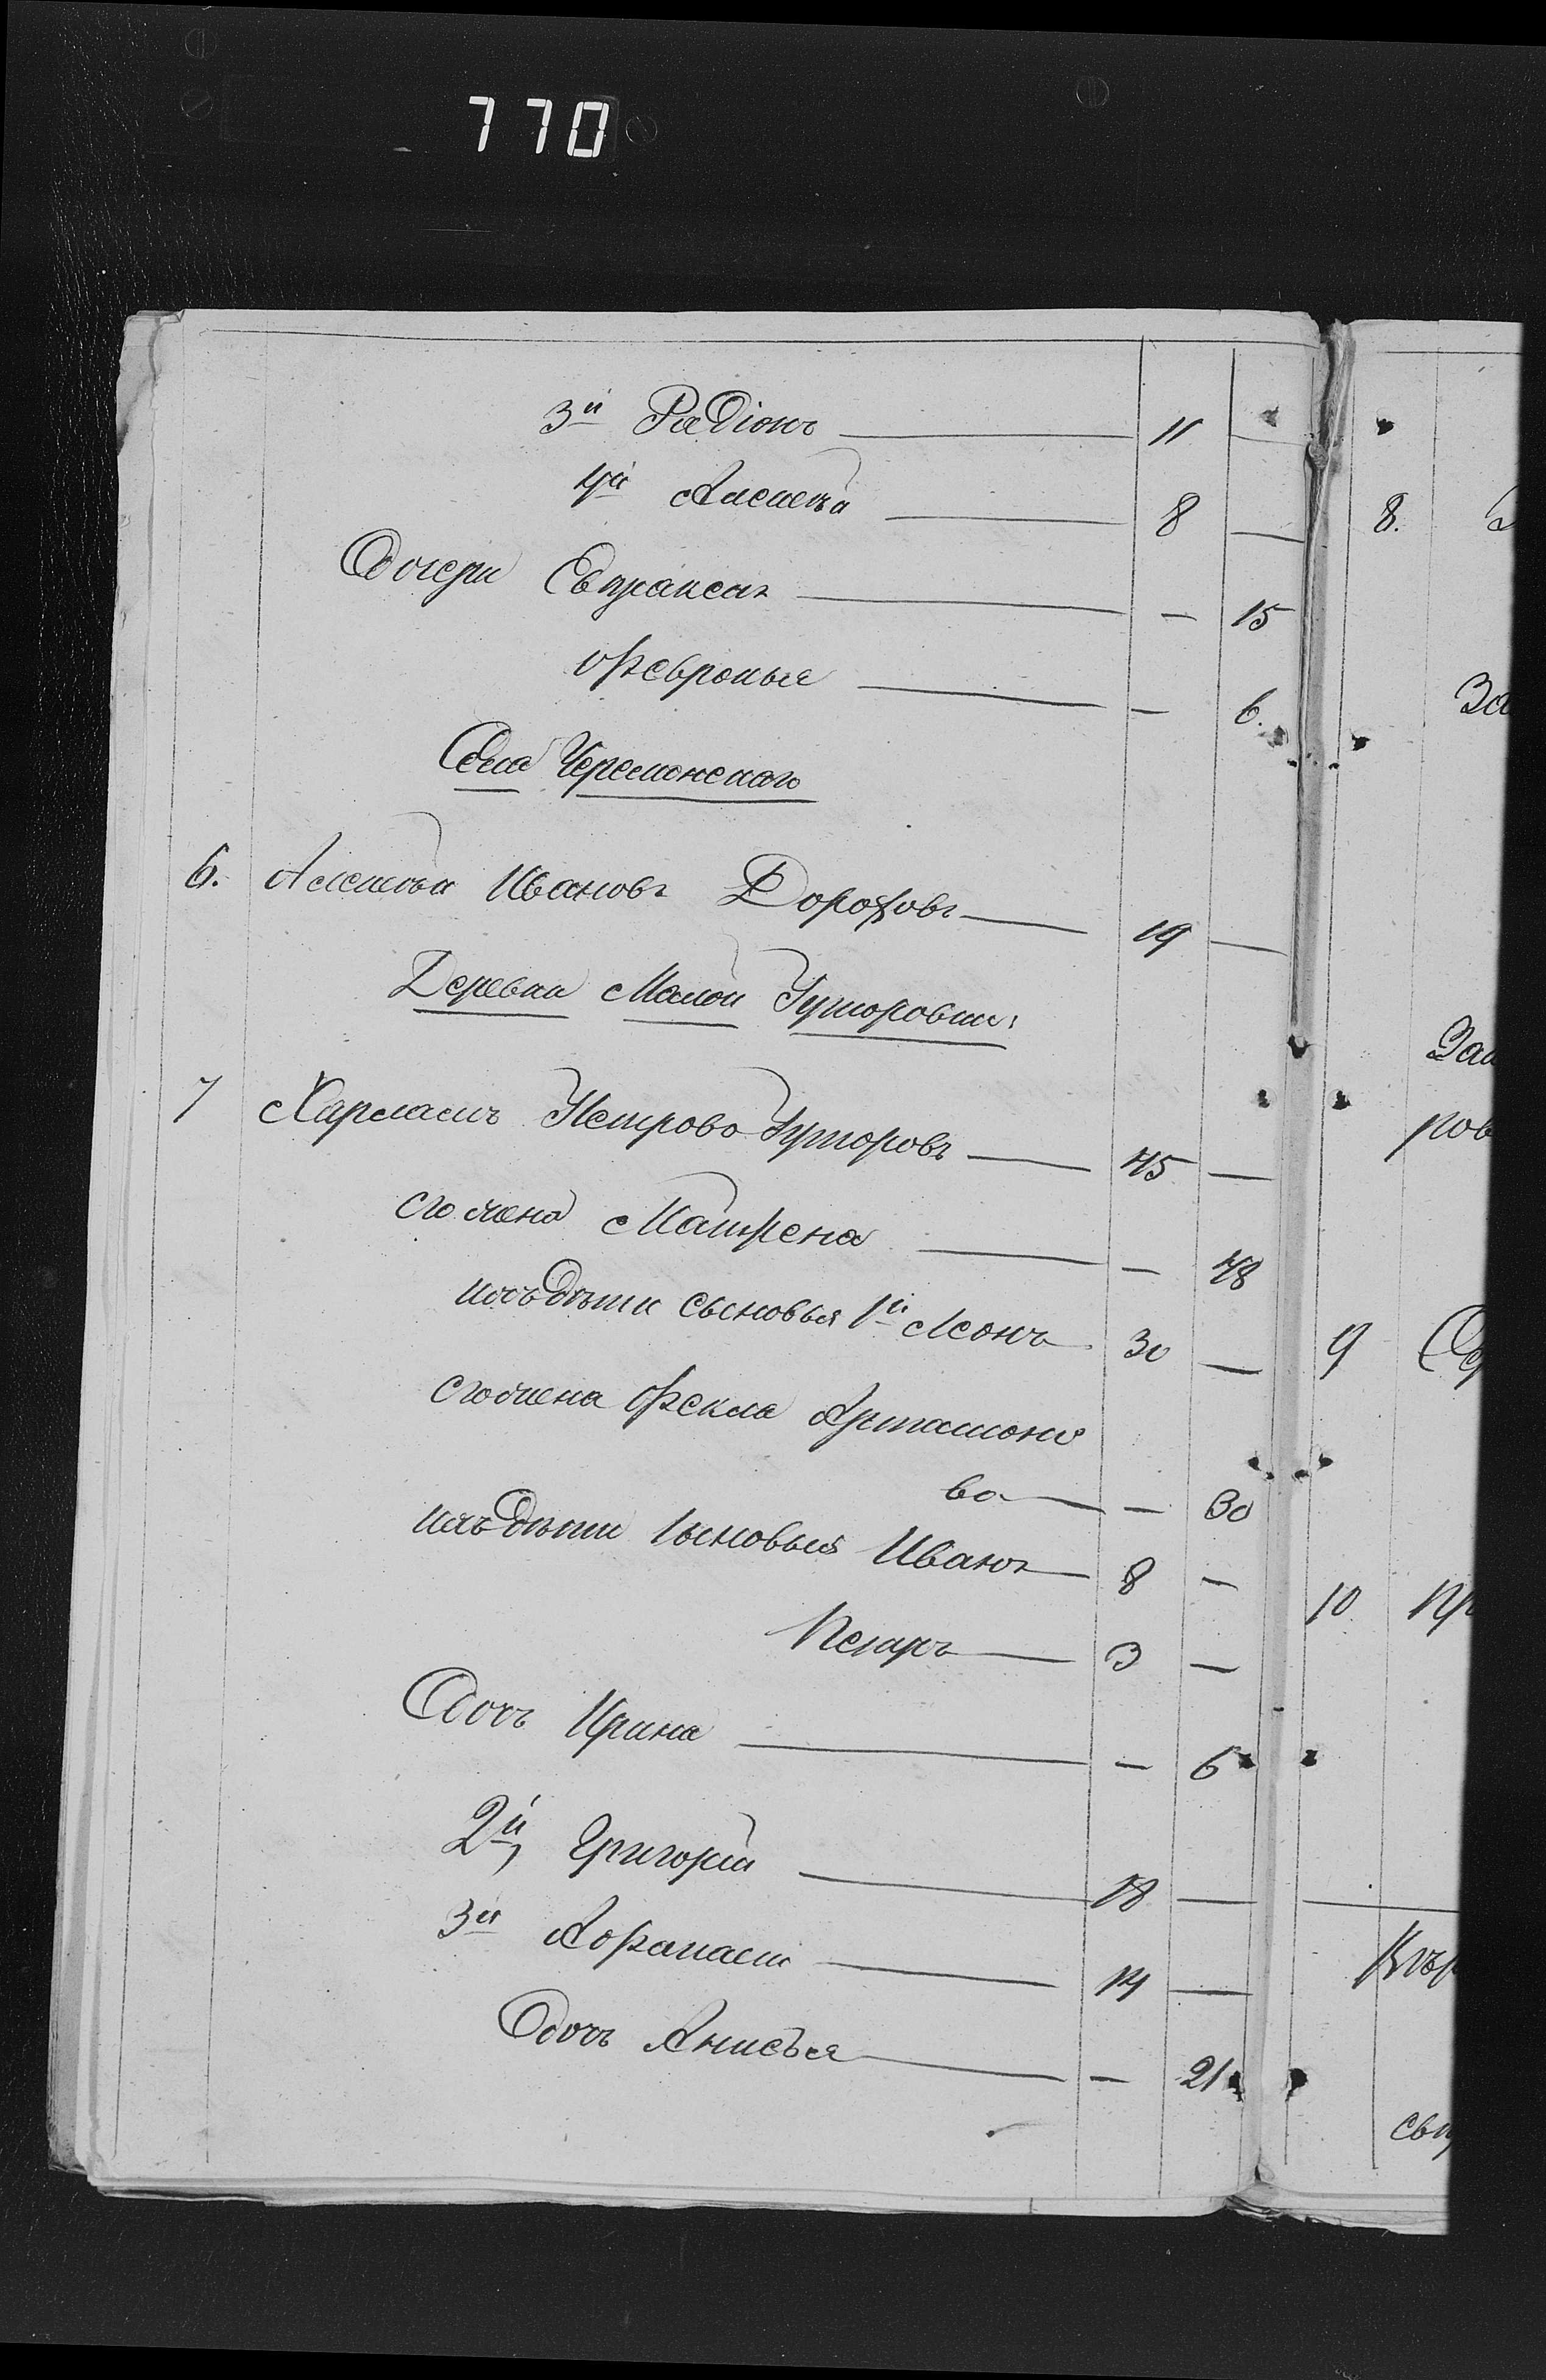 770
3й Радіонъ — 11 —
4й Алексѣй — 8 — 8.
Дочери Евпраксія — — 15
Ѳевронья — — 6. За
Села Черемонскаго
6. Алексѣй Ивановъ Дороховъ — 19 —
Деревни Малой Гуторовки:
7 Харлампъ Петрово Гуторовъ — 45 — ров
его жена Матрена — — 48
ихъ дѣти сыновья 1й Леонъ 30 — 9
его жена Фекла Артамоно
ва — — 30
ихъ дѣти сыновья Иванъ — 8 — 10 Пр
Петръ — 3 —
Дочь Ирина — — 6
2й, Григорій — 18 —
3й Афанасій — 14 —
Дочь Анисья — — 21